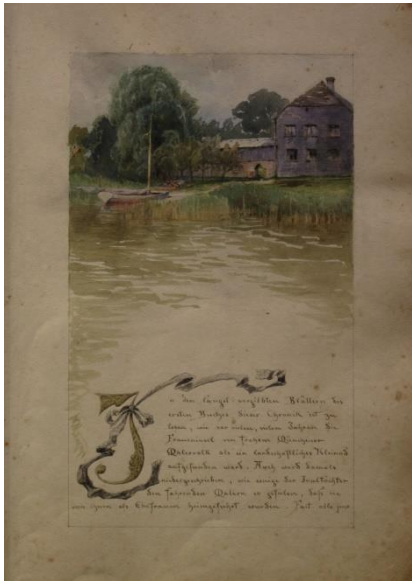 In den längst vergilbten Blättern des
ersten Buches dieser Chronik ist zu
lesen, wie vor vielen, vielen Jahren die
Fraueninsel von frohem Münchener
Malervolk als ein landschaftliches Kleinod
aufgefunden ward. Auch ward damals
niedergeschrieben, wie einige der
den fahrenden Malern so gefielen, daß sie
von ihnen als Ehefrauen heimgeführt wurden. Fast alle